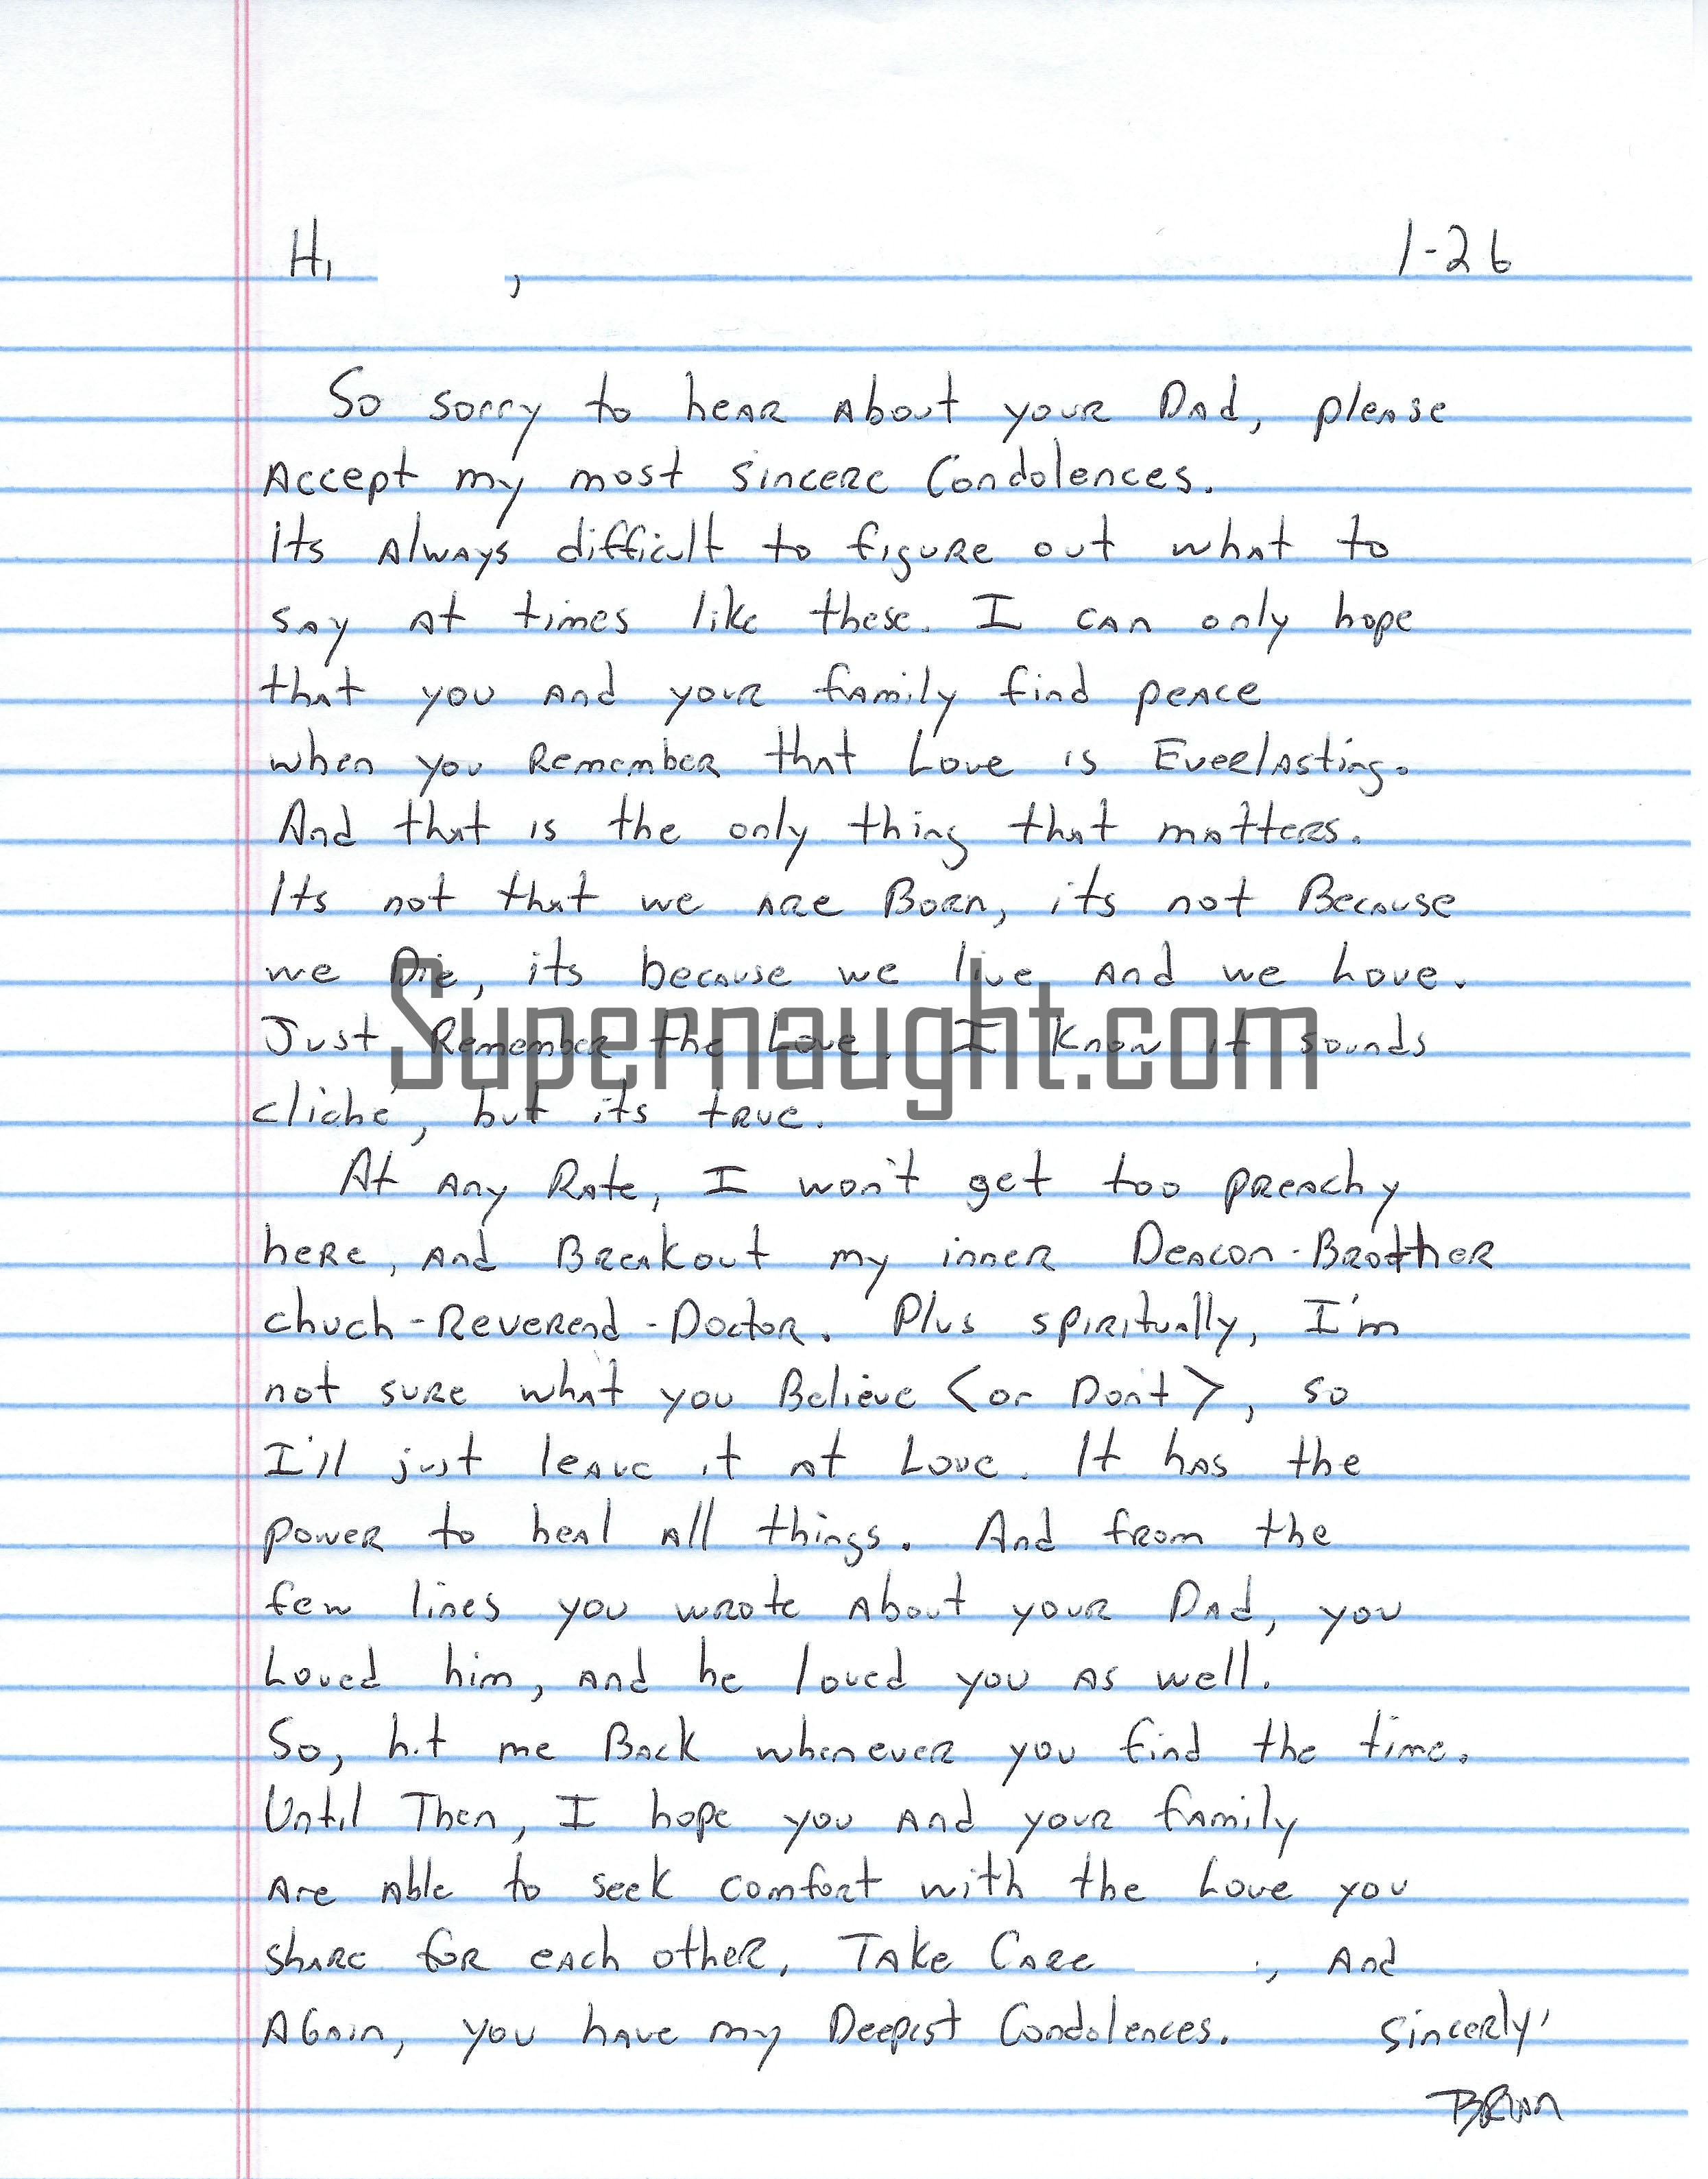 Hi , 1-26
So sorry to hear about your Dad, please
Accept my most sincere Condolences.
Its Always difficult to figure out what to
say at times like these. I can only hope
that you and your family find peace
when you Remember that Love is Everlasting.
And that is the only thing that matters.
Its not that we are Born, its not Because
we Die, its because we live and we Love.
Just Remember the Love. I Know it sounds
cliché, but its true.
Supernaught.com
At any Rate, I won't get too preachy
here, and Breakout my inner Deacon-Brother
chuch-Reverend-Doctor. Plus spiritually, I'm
not sure what you Believe <or Don't>, so
I'll just leave it at Love. It has the
power to heal all things. And from the
few lines you wrote about your Dad, you
Loved him, and he loved you as well.
So, hit me Back whenever you find the time.
Until Then, I hope you and your family
are able to seek comfort with the Love you
share for each other, Take Care , And
Again, you have my Deepest Condolences. Sincerly,
Brian